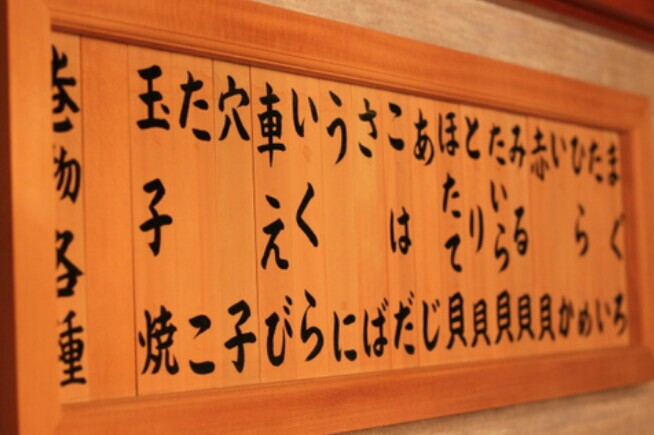 まぐろ
たい
ひらめ
いか
赤貝
みる貝
たいら貝
とり貝
ほたて貝
あじ
こはだ
さば
うに
いくら
車えび
穴子
たこ
玉子焼
巻物各種